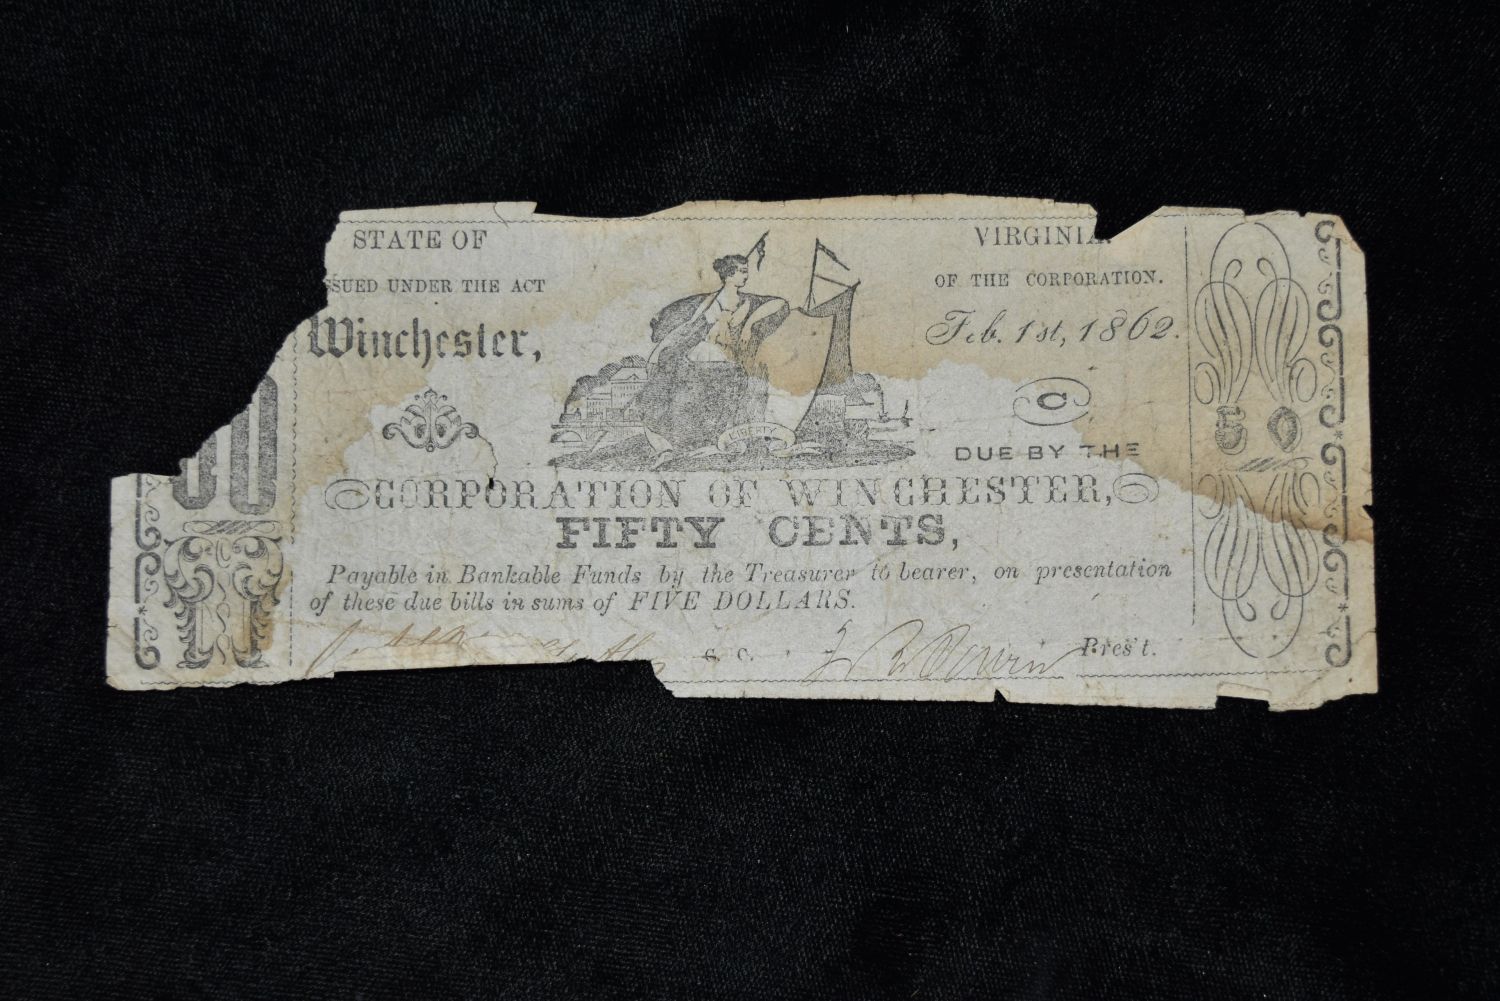 STATE OF VIRGINIA
SSUED UNDER THE ACT OF THE CORPORATION.
Winchester, Feb. 1st, 1862.
C
50 50
DUE BY THE
CORPORATION OF WINCHESTER,
FIFTY CENTS,
Payable in Bankable Funds by the Treasurer to bearer, on presentation
of these due bills in sums of FIVE DOLLARS.
LIBERTY
Pres't.